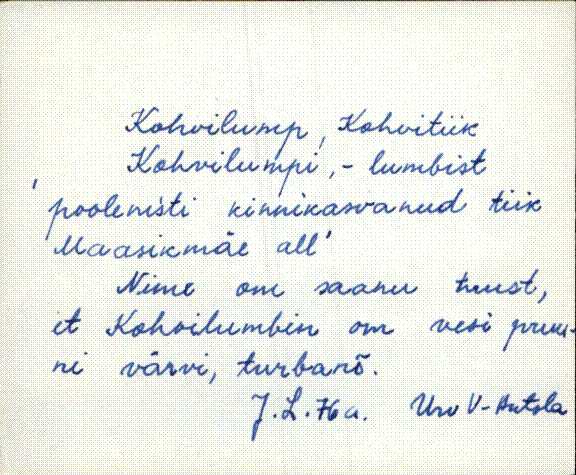 Kohvilump, Kohvitiik
Kohvilumpi, - lumbist
'poolenisti kinnikasvanud tiik
Maasikmäe all'
Nime om saanu tuust,
et Kohvilumbin om vesi pruu-
ni värvi, turbanõ.
J. L. 76 a. Urv V-